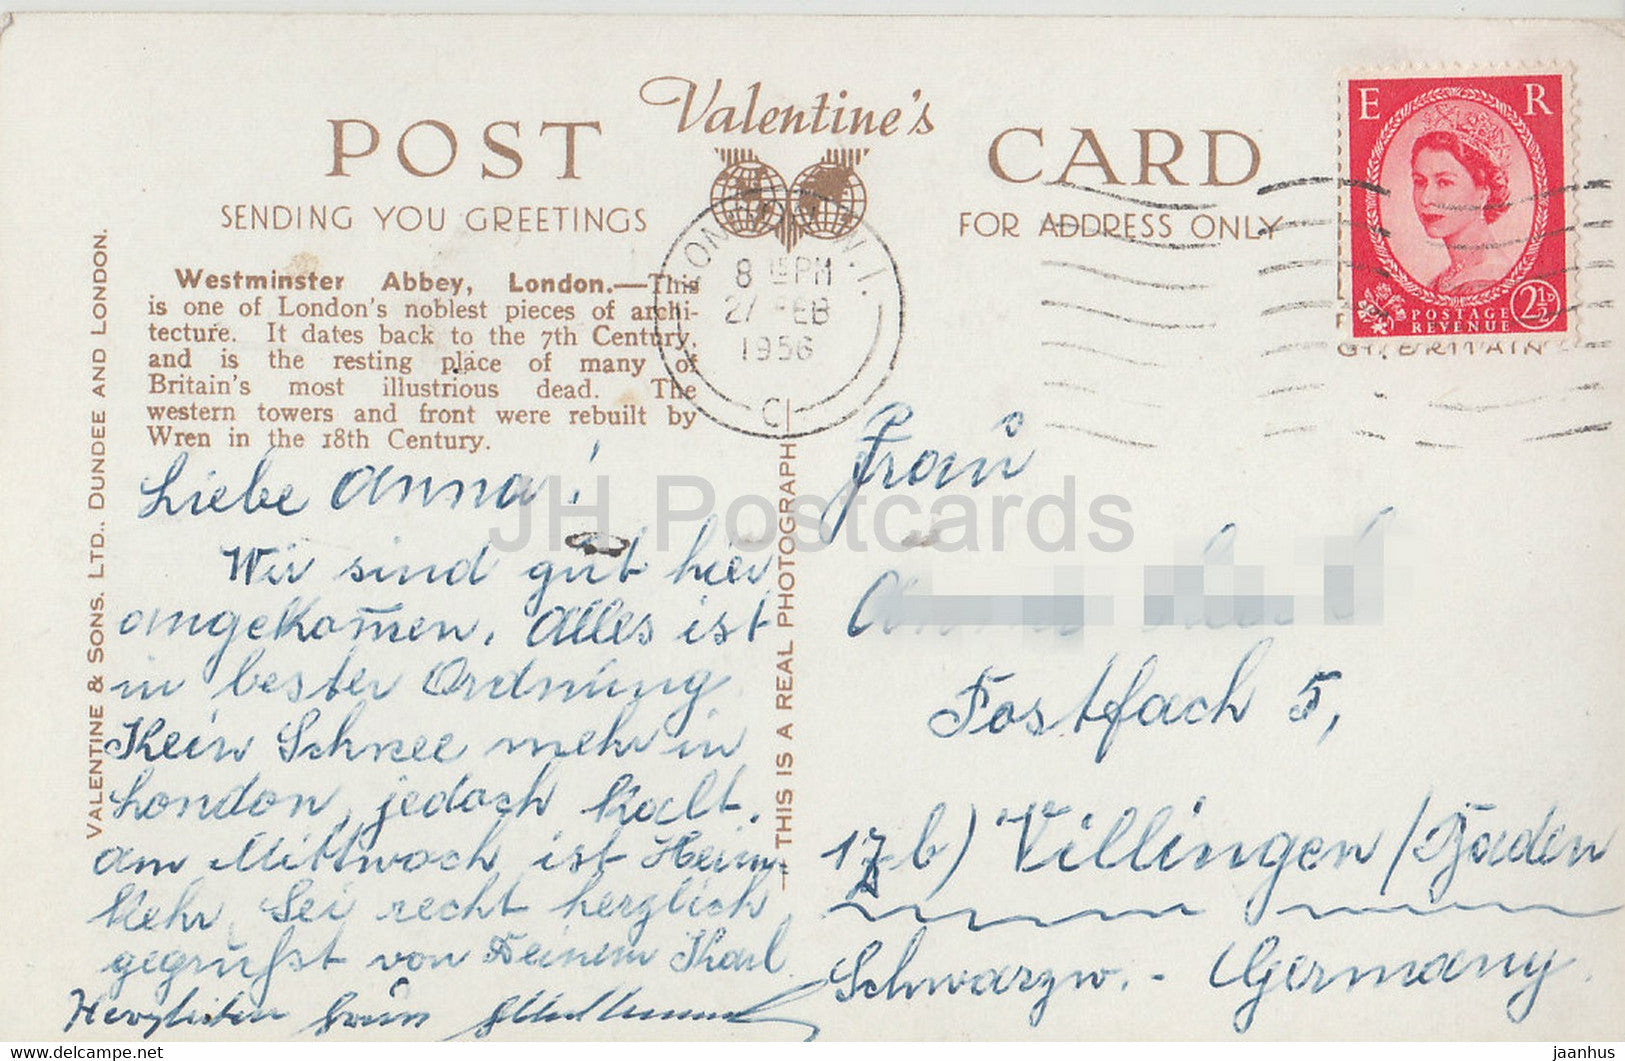 Valentine's
POST CARD
SENDING YOU GREETINGS
FOR ADDRESS ONLY
E R
POSTAGE
REVENUE
2½D
GT. BRITAIN
LONDON W.1.
8 15 PM
27 FEB
1956
C
Westminster Abbey, London.—This
is one of London's noblest pieces of archi-
tecture. It dates back to the 7th Century,
and is the resting place of many of
Britain's most illustrious dead. The
western towers and front were rebuilt by
Wren in the 18th Century.
VALENTINE & SONS. LTD., DUNDEE AND LONDON.
THIS IS A REAL PHOTOGRAPH
Liebe Anna!
Wir sind gut hier
angekom̄en. Alles ist
in bester Ordnung.
Kein Schnee mehr in
London, jedoch kalt.
Am Mittwoch ist Heim-
kehr. Sei recht herzlich
gegrüßt von Deinem Karl
Herzlichen Gruß
Frau
Postfach 5,
17b) Villingen / Baden
Schwarzw. - Germany.
JH Postcards
www.delcampe.net
jaanhus